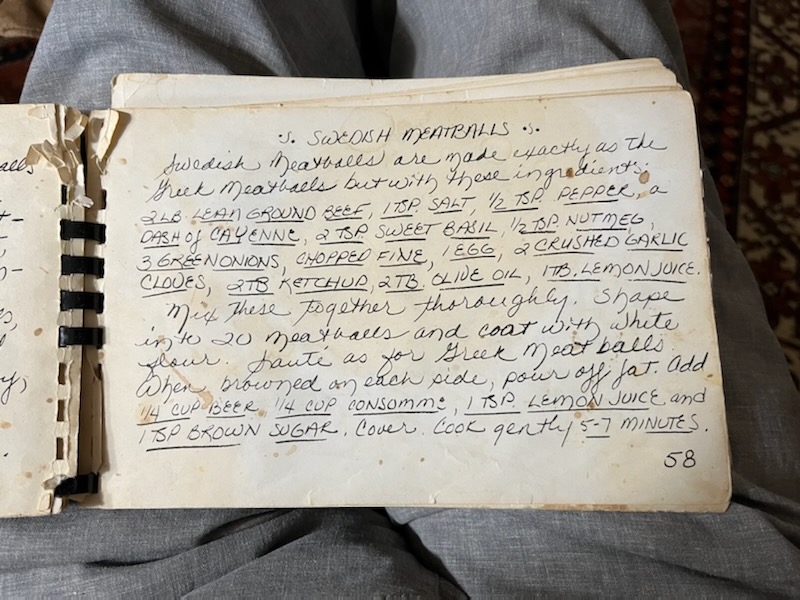 alls
·S· SWEDISH MEATBALLS ·S·
Swedish Meatballs are made exactly as the
Greek Meatballs but with these ingredients:
2 LB. LEAN GROUND BEEF, 1 TSP. SALT, 1/2 TSP. PEPPER, a
DASH of CAYENNE, 2 TSP. SWEET BASIL, 1/2 TSP NUTMEG,
3 GREEN ONIONS, CHOPPED FINE, 1 EGG, 2 CRUSHED GARLIC
CLOVES, 2 TB KETCHUP, 2 TB. OLIVE OIL, 1 TB. LEMON JUICE.
Mix these together thoroughly. Shape
into 20 meatballs and coat with white
flour. Sauté as for Greek Meatballs.
When browned on each side, pour off fat. Add
1/4 CUP BEER, 1/4 CUP CONSOMME, 1 TSP. LEMON JUICE and
1 TSP BROWN SUGAR. Cover. Cook gently 5-7 MINUTES.
58